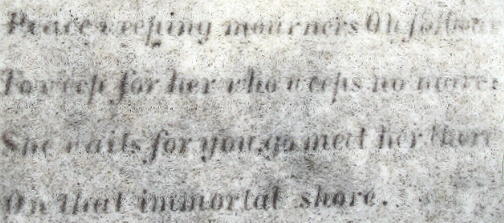 Peace weeping mourners Oh
To weep for her who weeps no more:
She waits for you, go meet her there
On that immortal shore.